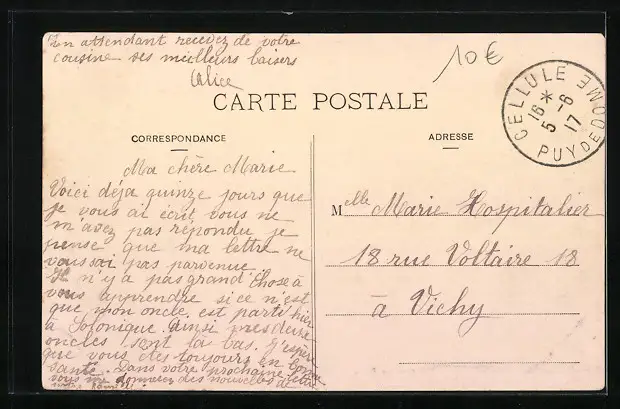 En attendant recevez de votre
cousine ses meilleurs baisers
Alice
10€
CARTE POSTALE
CELLULE
16 * 5 - 6 17
PUY DE DOME
CORRESPONDANCE
ADRESSE
Ma chère Marie
Voici déja quinze jours que
je vous ai écrit vous ne
m'avez pas répondu je
pense que ma lettre ne
vous sai pas parvenue.
Il n'y a pas grand'chose à
vous apprendre si ce n'est
que mon oncle est parti hier
à Salonique. Ainsi
oncles sont la bas. J'espère
que vous êtes toujours en bonne
santé. Dans votre prochaine lettre
vous me donnerez des nouvelles de
Melle Marie Hospitalier
18 rue Voltaire 18
à Vichy